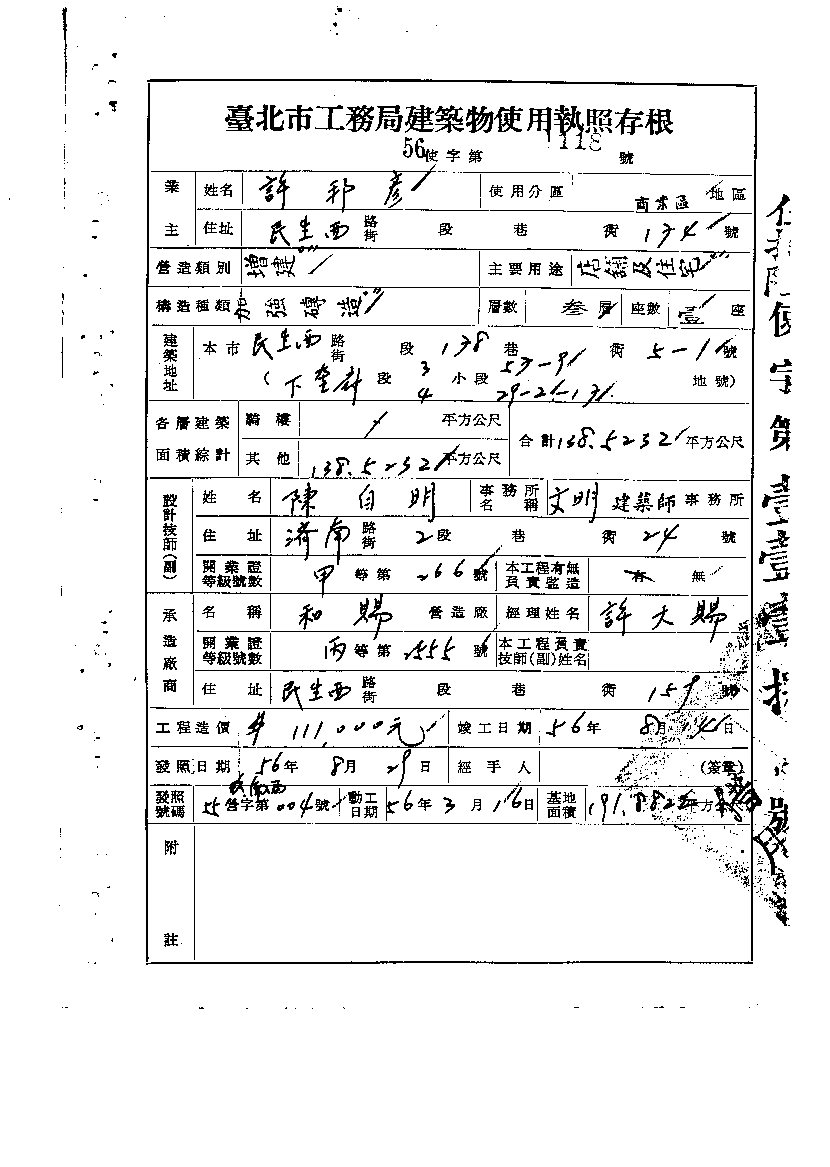 臺北市工務局建築物使用執照存根
56使字第 1118 號
業主 姓名 許邦彥 使用分區 商業區 地區
住址 民生西 路街 段 巷 衖 134 號
營造類別 增建 主要用途 店舖及住宅
構造種類 加強磚造 層數 叁層 座數 壹座
建築地址 本市 民生西 路街 段 138 巷 衖 5-1 號
( 段 3 4 小段 53-9 29-21-131 地號)
各層建築面積綜計 騎樓 平方公尺 合計 138.5232 平方公尺
其他 138.5232 平方公尺
設計技師(副) 姓名 陳自明 事務所名稱 文明建築師事務所
住址 濟南 路街 2段 巷 衖 24 號
開業證等級號數 甲等第 266 號 本工程有無負責監造 有 無
承造廠商 名稱 和賜 營造廠 經理姓名 許大賜
開業證等級號數 丙等第 2555 號 本工程負責技師(副)姓名
住址 民生西 路街 段 巷 衖 159 號
工程造價 # 111,000元 竣工日期 56年 8月 14日
發照日期 56年 8月 29日 經手人 (簽章)
發照號碼 55營字第 004號 動工日期 56年 3月 16日 基地面積 191.882 平方
附註
使字第壹壹壹拾 號